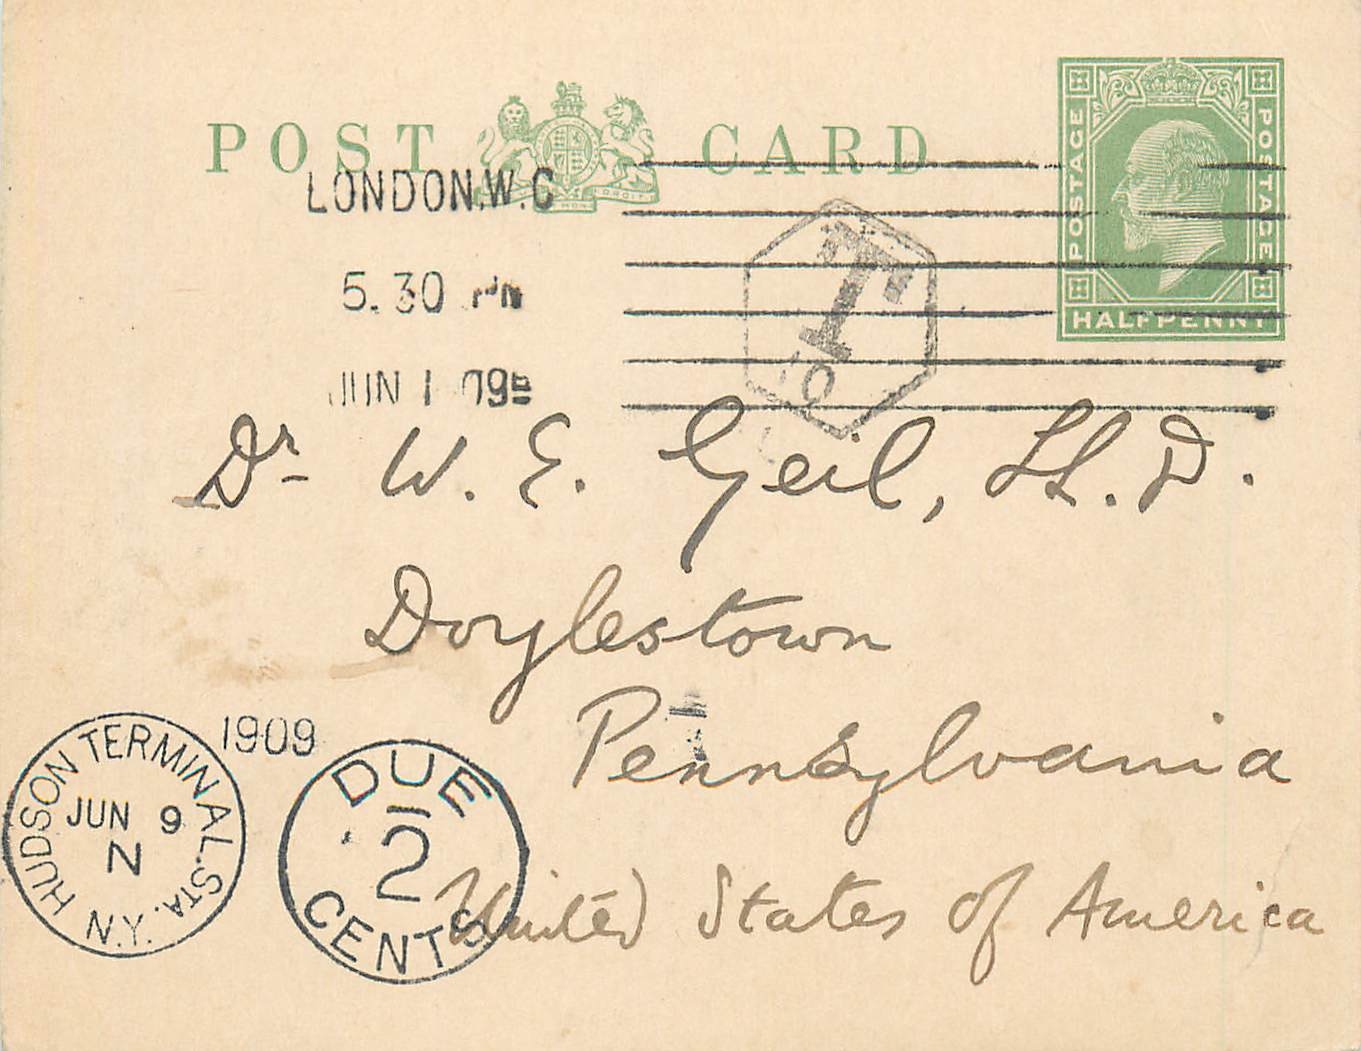 POST CARD
POSTAGE POSTAGE
HALFPENNY
LONDON.W.C
5.30 PM
JUN 1 09
T
Dr W. E. Geil, LL. D.
Doylestown
Pennsylvania
United States of America
1909
HUDSON TERMINAL STA. N.Y.
JUN 9
N
DUE
2
CENTS